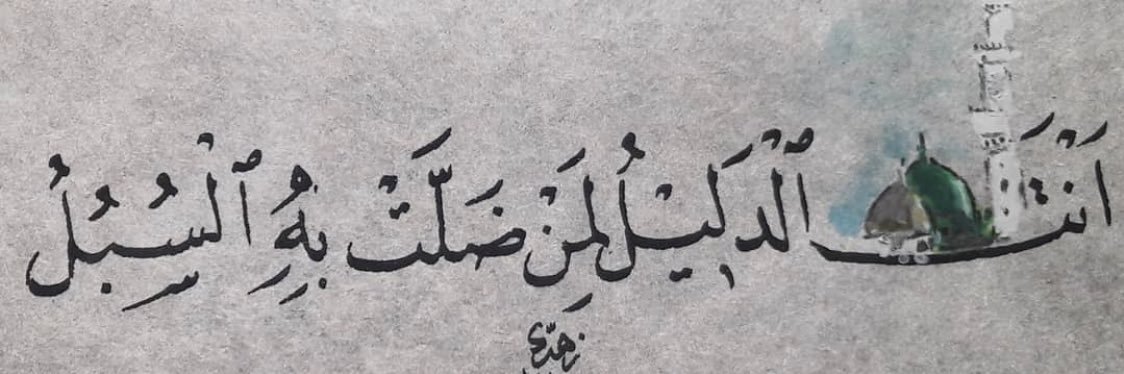 اَنْتَ ٱلْدَلِيْلُ لِمَنْ ضَلَّتْ بِهِ ٱلْسُبُلُ